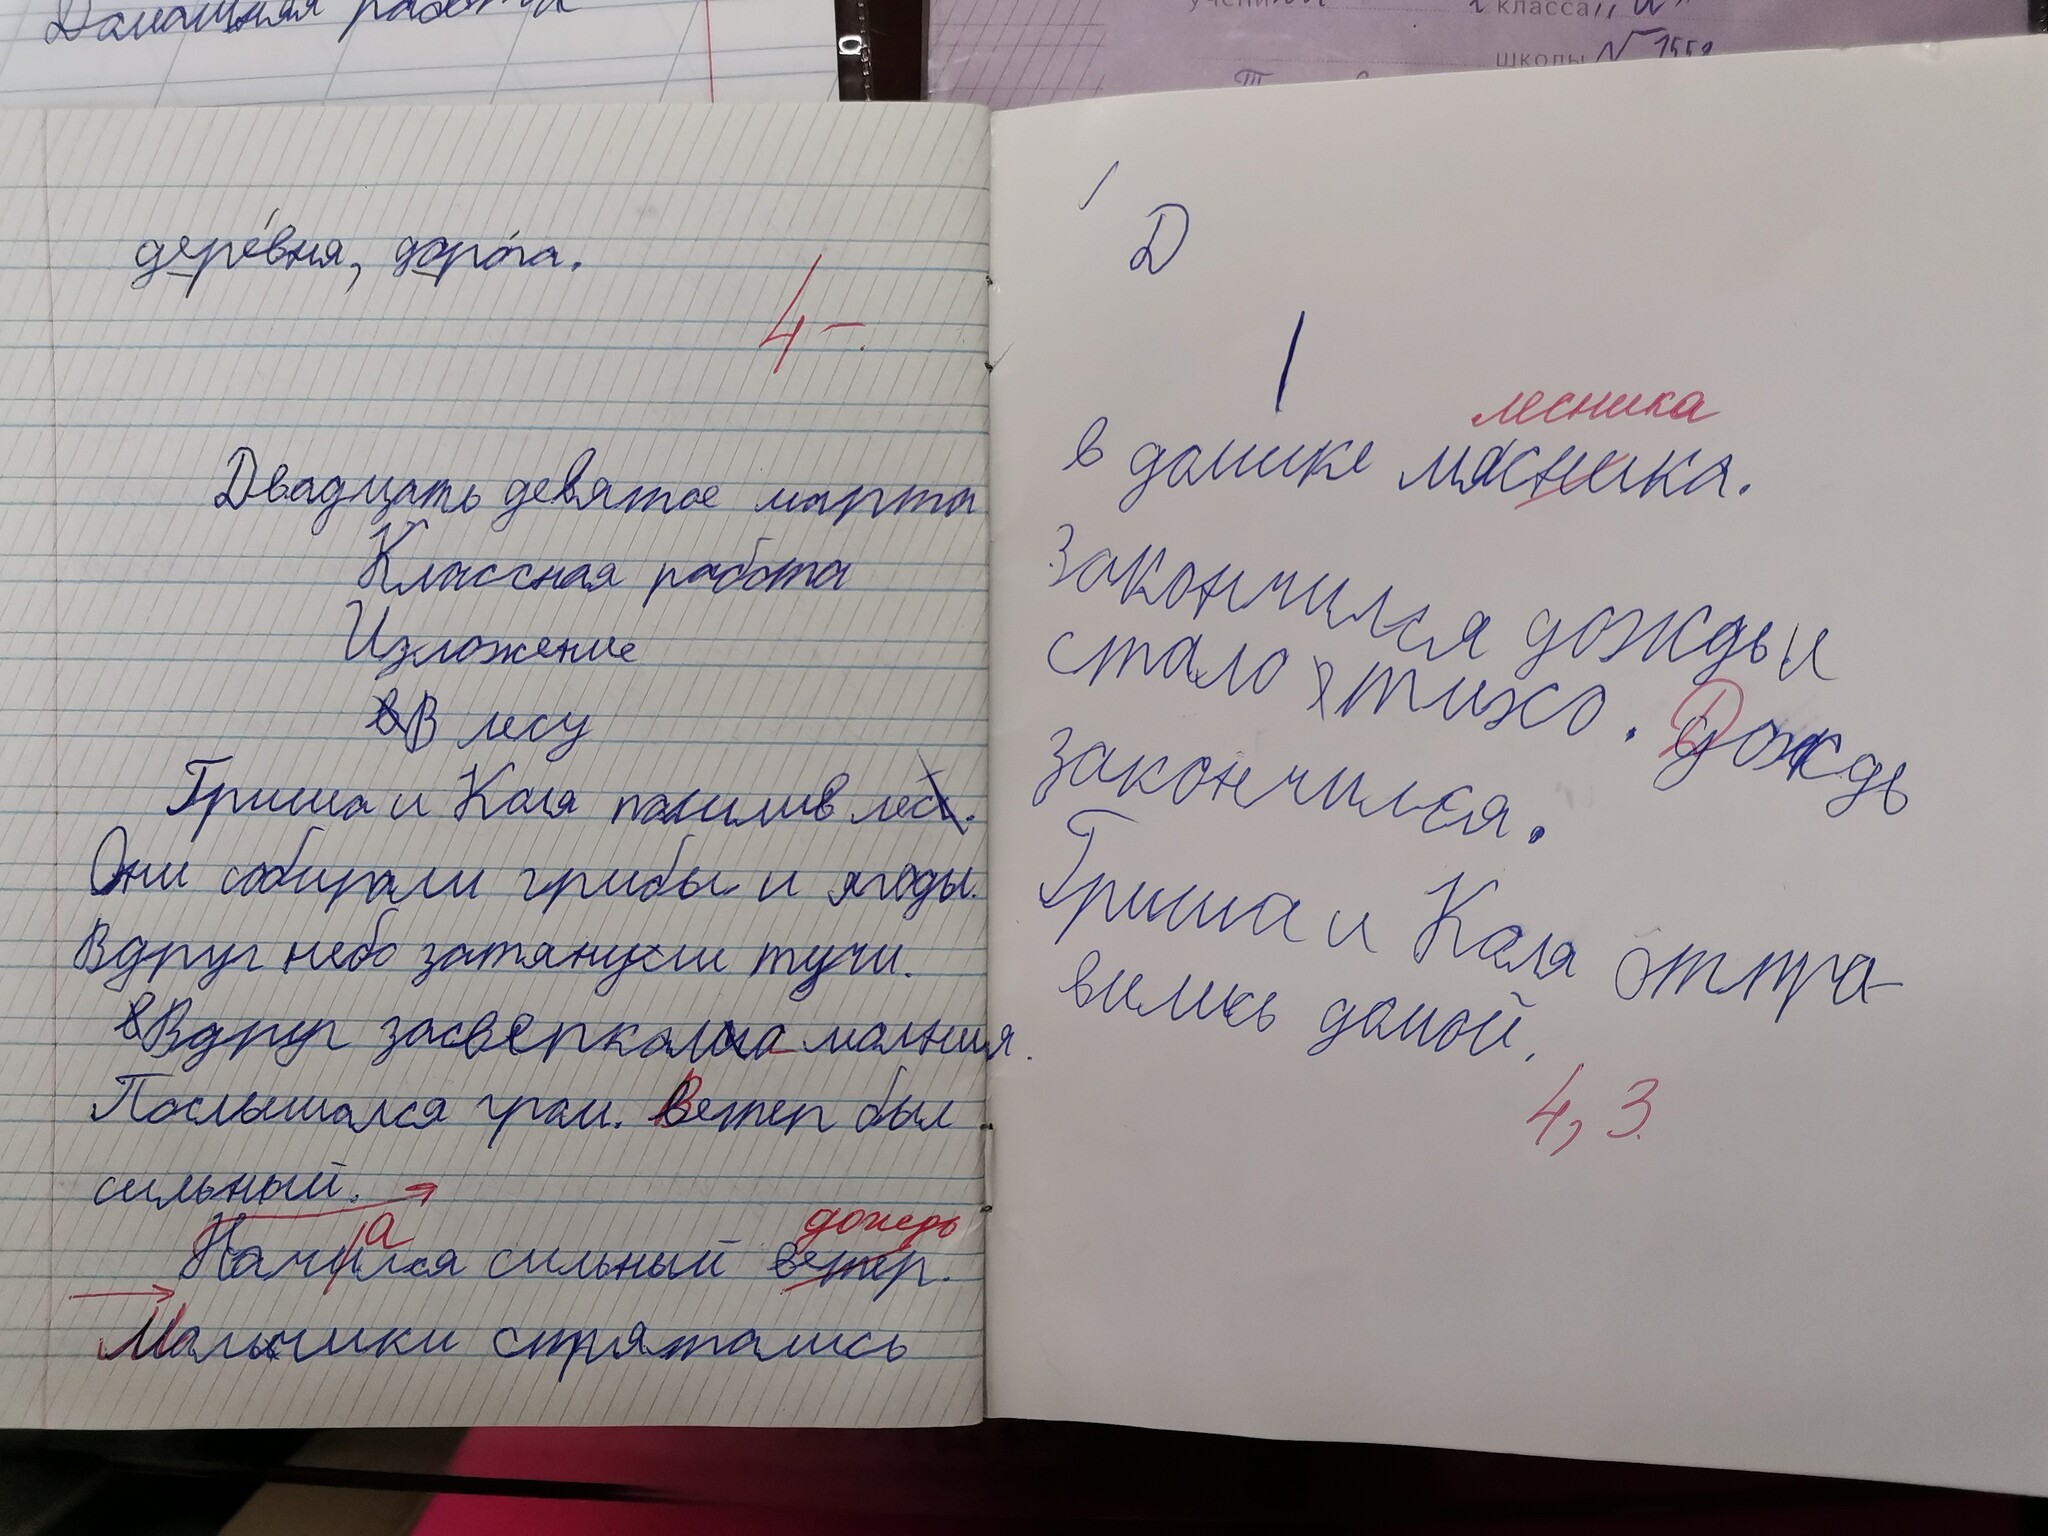 Домашняя работа
класса "И"
школы №
деревня, дорога.
4-.
Двадцать девятое марта
Классная работа
Изложение
В лесу
Гриша и Коля пошли в лес.
Они собирали грибы и ягоды.
Вдруг небо затянули тучи.
Вдруг засверкала молния.
Послышался гром. Ветер был
сильный.
а дождь
Начился сильный ветер.
Мальчики спрятались
Д
лесника
в домике мясника.
Закончился дождь и
стало тихо. Дождь
закончился.
Гриша и Коля отпра-
вились домой.
4, 3.